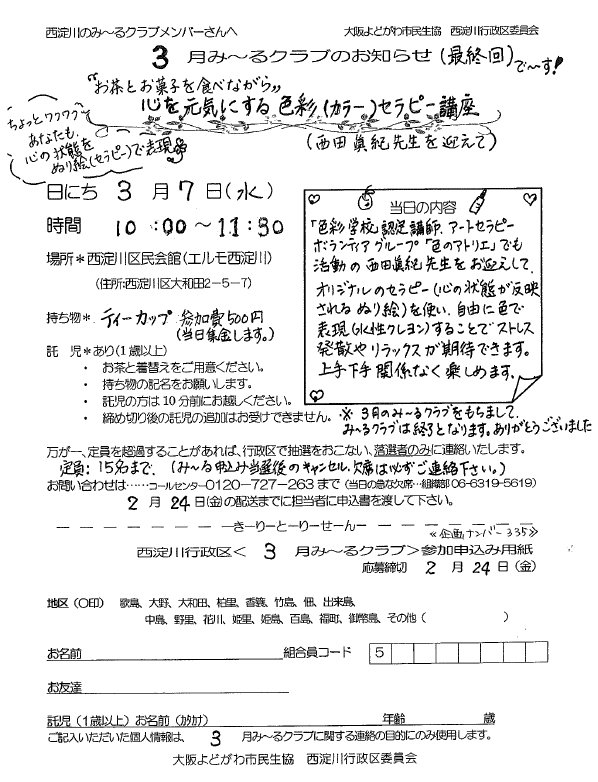 西淀川のみ～るクラブメンバーさんへ　大阪よどがわ市民生協　西淀川行政区委員会
3 月み～るクラブのお知らせ（最終回）で～す!
"お茶とお菓子を食べながら"
心を元気にする色彩（カラー）セラピー講座
（西田眞紀先生を迎えて）
ちょっとワクワク
あなたも、
心の状態を
ぬり絵(セラピー)で表現
日にち 3 月 7 日（水）
時間 10:00～11:30
場所＊西淀川区民会館（エルモ西淀川）
（住所:西淀川区大和田2－5－7）
持ち物＊ ティーカップ 参加費500円
（当日集金します。）
託　児＊あり（1歳以上）
・ お茶と着替えをご用意ください。
・ 持ち物の記名をお願いします。
・ 託児の方は10分前にお越しください。
・ 締め切り後の託児の追加はお受けできません。
当日の内容
「色彩学校」認定講師、アートセラピー
ボランティアグループ「色のアトリエ」でも
活動の西田眞紀先生をお迎えして、
オリジナルのセラピー（心の状態が反映
されるぬり絵）を使い、自由に色で
表現（水性クレヨン）することでストレス
発散やリラックスが期待できます。
上手下手関係なく楽しめます。
※ 3月のみ～るクラブをもちまして、
み～るクラブは終了となります。ありがとうございました
万が一、定員を超過することがあれば、行政区で抽選をおこない、落選者のみに連絡いたします。
定員：15名まで、（み～る申込み当選後のキャンセル、欠席は必ずご連絡下さい。）
お問い合わせは……コールセンター0120－727－263まで（当日の急な欠席…組織部06-6319-5619）
2 月 24日(金)の配送までに担当者に申込書を渡して下さい。
きーりーとーりーせーんー
≪企画ナンバー335≫
西淀川行政区＜ 3 月み～るクラブ＞参加申込み用紙
応募締切 2 月 24日（金）
地区（○印）　歌島、大野、大和田、柏里、香簑、竹島、佃、出来島、
中島、野里、花川、姫里、姫島、百島、福町、御幣島、その他（　　　　）
お名前　組合員コード 5
お友達
託児（1歳以上）お名前（カタカナ）　年齢　歳
ご記入いただいた個人情報は、 3 月み～るクラブに関する連絡の目的にのみ使用します。
大阪よどがわ市民生協　西淀川行政区委員会